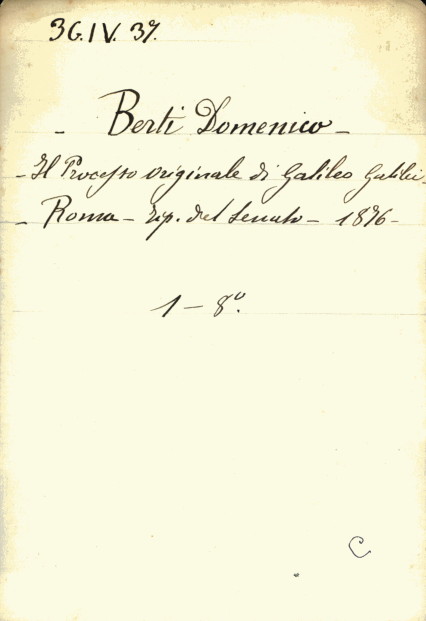 36.IV.37.
- Berti Domenico -
- Il Processo originale di Galileo Galilei -
- Roma - Tip. del Senato - 1876 -
1 - 8º.
C